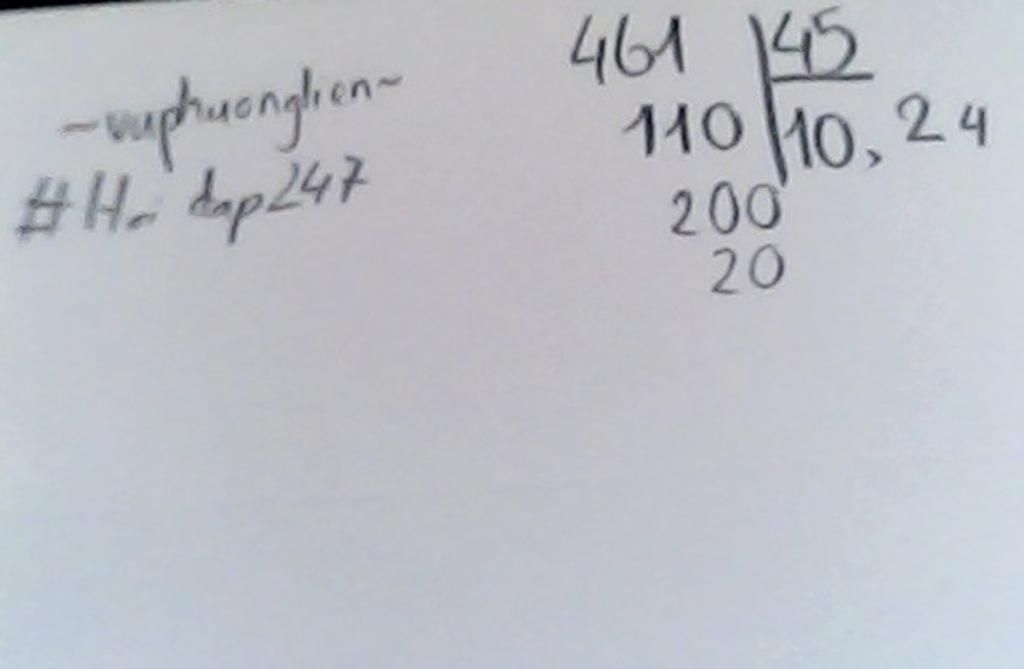 ~vuphuonglien~
#H_ dap247
461 45
110 10,24
200
20